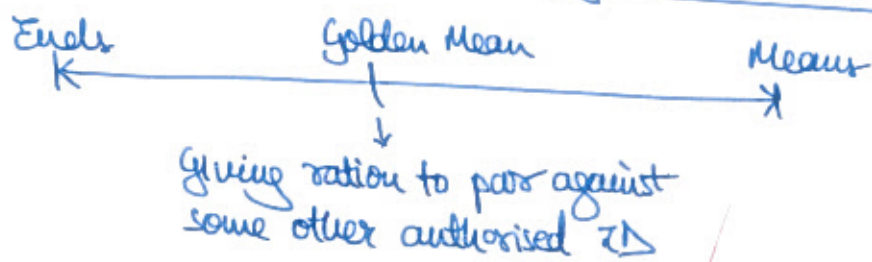 Ends Golden Mean Means
Giving ration to poor against
some other authorised ID